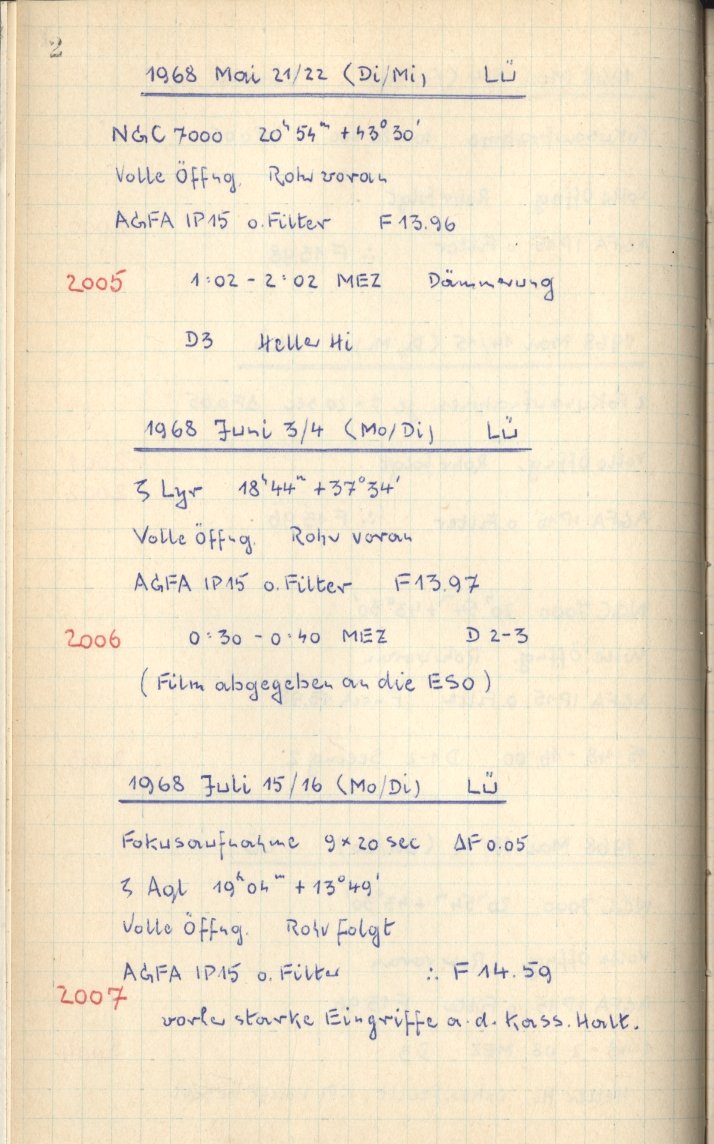 2
1968 Mai 21/22 (Di/Mi) LÜ
NGC 7000 20ʰ54ᵐ +43°30'
Volle Öffng. Rohr voran
AGFA IP15 o.Filter F 13.96
2005 1:02 - 2:02 MEZ Dämmerung
D3 Heller Hi
1968 Juni 3/4 (Mo/Di) LÜ
ζ Lyr 18ʰ44ᵐ +37°34'
Volle Öffng. Rohr voran
AGFA IP15 o.Filter F 13.97
2006 0:30 - 0:40 MEZ D 2-3
(Film abgegeben an die ESO)
1968 Juli 15/16 (Mo/Di) LÜ
Fokusaufnahme 9×20 sec ΔF 0.05
ζ Aql 19ʰ04ᵐ +13°49'
Volle Öffng. Rohr folgt
AGFA IP15 o.Filter ∴ F 14.59
2007
vorher starke Eingriffe a.d. Kass. Halt.